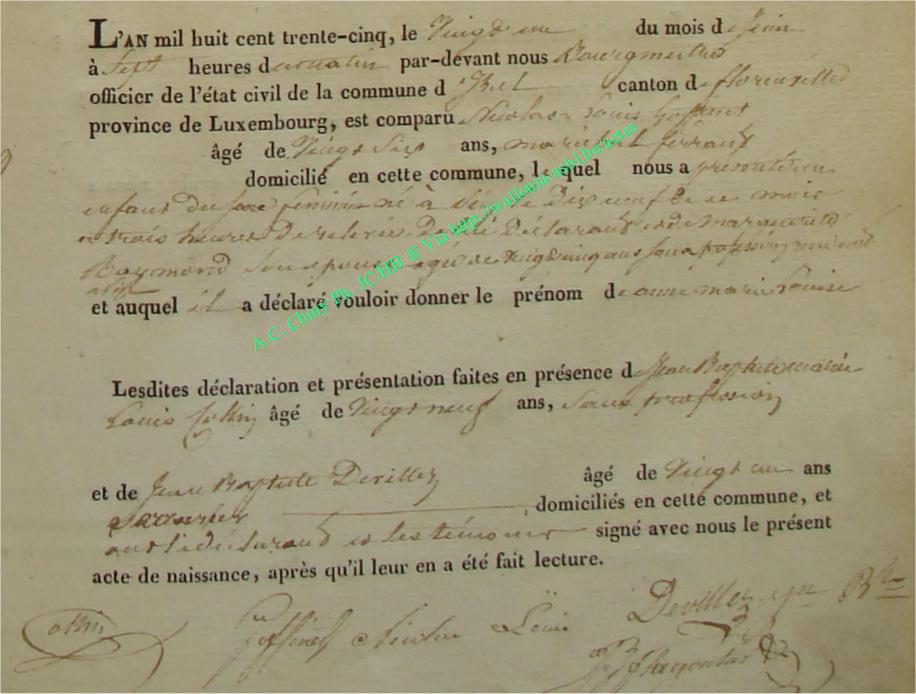 L'AN mil huit cent trente-cinq, le Vingt un du mois de Juin
à Sept heures du matin par-devant nous Bourgmestre
officier de l'état civil de la commune d' canton de florenville
province de Luxembourg, est comparu Nicolas Louis Goffinet
âgé de Vingt Six ans, maréchal ferrant
domicilié en cette commune, lequel nous a présenté un
enfant du sexe féminin né à Dix neuf de ce mois
à trois heures de relevée De lui Déclarant et de Marguerite
Raymond Son épouse agée de Vingt cinq ans sans profession
et auquel il a déclaré vouloir donner le prénom de anne marie Louise
Lesdites déclaration et présentation faites en présence de Jean Baptiste
Louis Collin âgé de Vingt neuf ans, Sans profession
et de Jean Baptiste Devillez âgé de Vingt un ans
domiciliés en cette commune, et
ont le déclarant et les témoins signé avec nous le présent
acte de naissance, après qu'il leur en a été fait lecture.
Collin Goffinet Nicolas Louis Devillez Bte
A.C. Chiny Ph. JCHB ® Via http://wallonia-asbl.be/actes